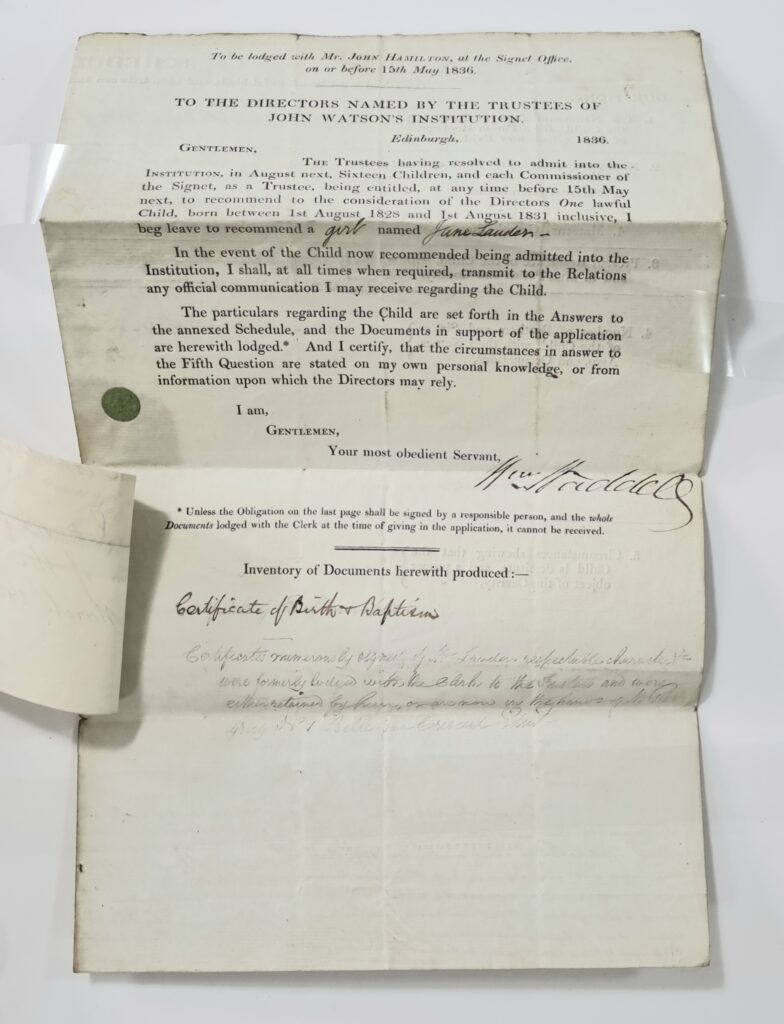 To be lodged with Mr. JOHN HAMILTON, at the Signet Office,
on or before 15th May 1836.
TO THE DIRECTORS NAMED BY THE TRUSTEES OF
JOHN WATSON'S INSTITUTION.
Edinburgh, 1836.
GENTLEMEN,
THE Trustees having resolved to admit into the
INSTITUTION, in August next, Sixteen Children, and each Commissioner of
the Signet, as a Trustee, being entitled, at any time before 15th May
next, to recommend to the consideration of the Directors One lawful
Child, born between 1st August 1828 and 1st August 1831 inclusive, I
beg leave to recommend a girl named Jane Lauder
In the event of the Child now recommended being admitted into the
Institution, I shall, at all times when required, transmit to the Relations
any official communication I may receive regarding the Child.
The particulars regarding the Child are set forth in the Answers to
the annexed Schedule, and the Documents in support of the application
are herewith lodged.* And I certify, that the circumstances in answer to
the Fifth Question are stated on my own personal knowledge, or from
information upon which the Directors may rely.
I am,
GENTLEMEN,
Your most obedient Servant,
Wm. Waddell
* Unless the Obligation on the last page shall be signed by a responsible person, and the whole
Documents lodged with the Clerk at the time of giving in the application, it cannot be received.
Inventory of Documents herewith produced:—
Certificate of Birth & Baptism
Certificates numerously signed of Lauder respectable character
were formerly lodged with the Clerk to the and were
either retained by him, or are now in the hands of